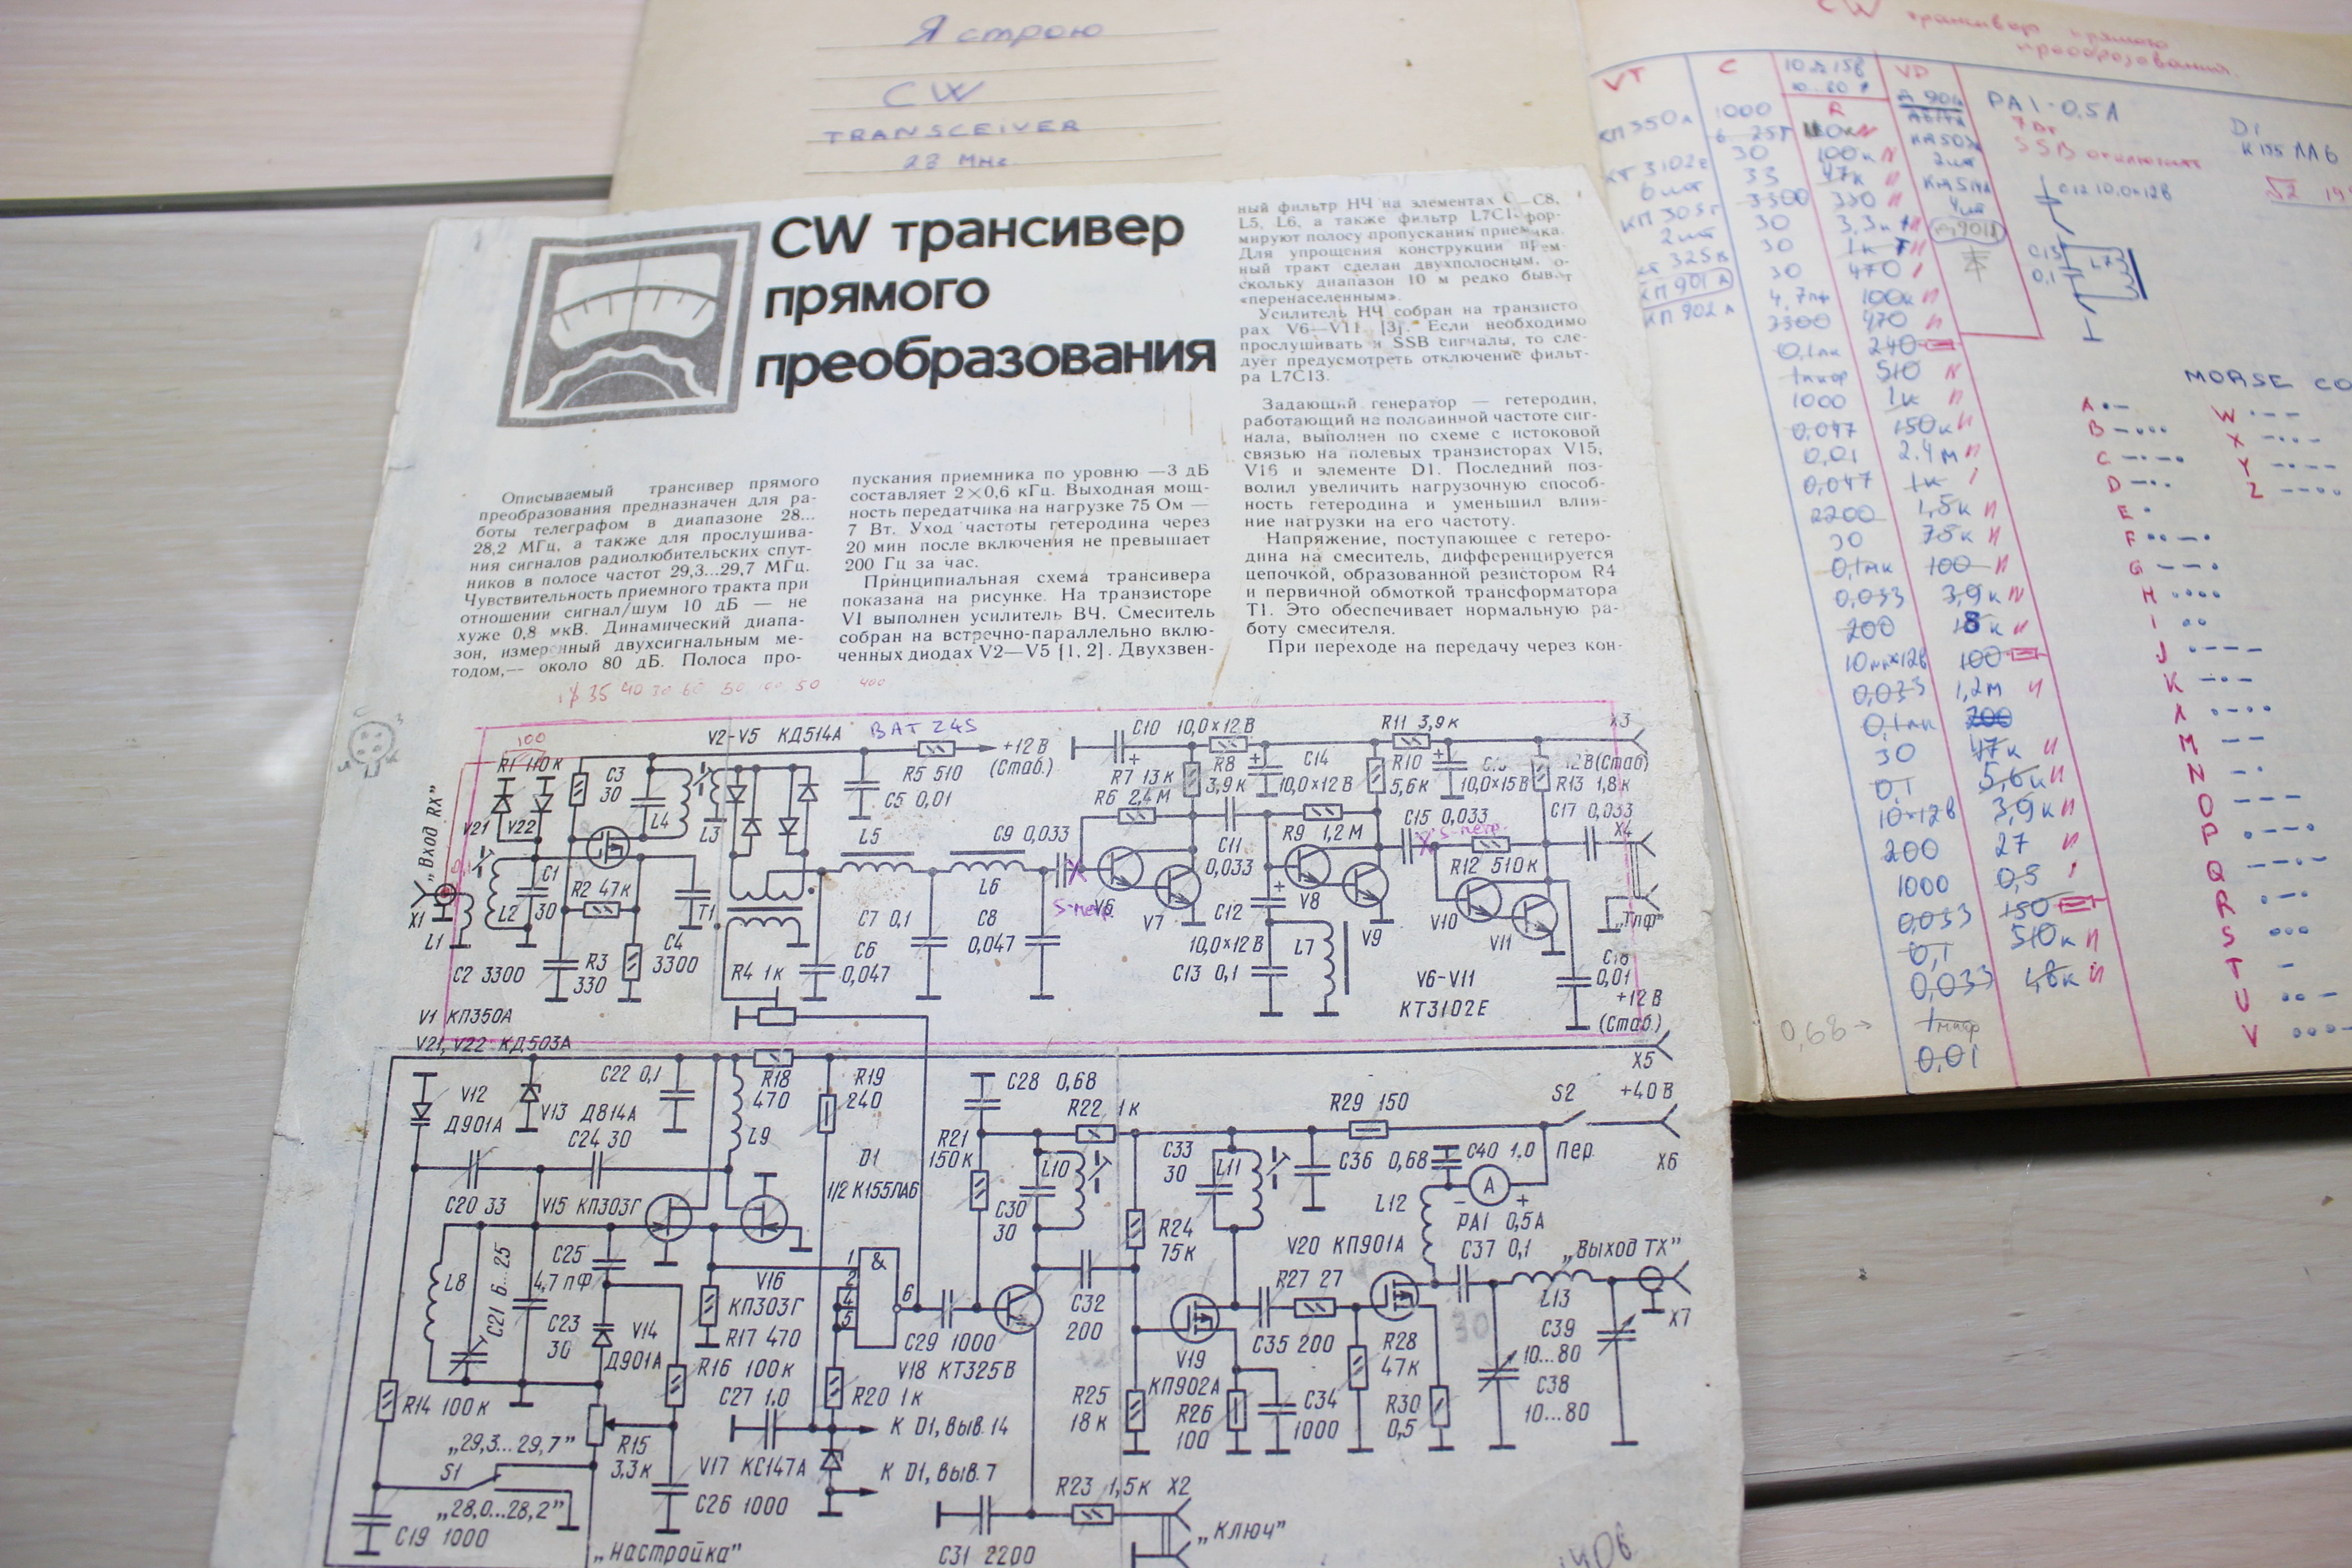 Я строю
CW
TRANSCEIVER
28 МНг
CW трансивер
прямого
преобразования
Описываемый трансивер прямого
преобразования предназначен для ра-
боты телеграфом в диапазоне 28...
28,2 МГц, а также для прослушива-
ния сигналов радиолюбительских спут-
ников в полосе частот 29,3...29,7 МГц.
Чувствительность приемного тракта при
отношении сигнал/шум 10 дБ — не
хуже 0,8 мкВ. Динамический диапа-
зон, измеренный двухсигнальным ме-
тодом,— около 80 дБ. Полоса про-
пускания приемника по уровню —3 дБ
составляет 2×0,6 кГц. Выходная мощ-
ность передатчика на нагрузке 75 Ом —
7 Вт. Уход частоты гетеродина через
20 мин после включения не превышает
200 Гц за час.
Принципиальная схема трансивера
показана на рисунке. На транзисторе
V1 выполнен усилитель ВЧ. Смеситель
собран на встречно-параллельно вклю-
ченных диодах V2—V5 [1, 2]. Двухзвен-
ный фильтр НЧ на элементах С—С8,
L5, L6, а также фильтр L7C1 фор-
мируют полосу пропускания приемника.
Для упрощения конструкции прием-
ный тракт сделан двухполосным,
скольку диапазон 10 м редко бывает
«перенаселенным».
Усилитель НЧ собран на транзисто
рах V6—V11 [3]. Если необходимо
прослушивать и SSB сигналы, то сле-
дует предусмотреть отключение фильт-
ра L7C13.
Задающий генератор — гетеродин,
работающий на половинной частоте сиг-
нала, выполнен по схеме с истоковой
связью на полевых транзисторах V15,
V16 и элементе D1. Последний поз-
волил увеличить нагрузочную способ-
ность гетеродина и уменьшил влия-
ние нагрузки на его частоту.
Напряжение, поступающее с гетеро-
дина на смеситель, дифференцируется
цепочкой, образованной резистором R4
и первичной обмоткой трансформатора
T1. Это обеспечивает нормальную ра-
боту смесителя.
При переходе на передачу через кон-
35 40 30 60 50 50 400
V2-V5 КД514А BAT 24S
100
R1 110к
C3
30
V21 V22
L4
L3
R5 510
+12 В
(Стаб.)
C5 0,01
C10 10,0×12 В
R11 3,9 к
X3
R7 13 к
R8
3,9 к
C14
10,0×12 В
R10
5,6 к
10,0×15 В
12В(Стаб)
R13 1,8 к
R6 2,4 М
„Вход RX”
X1
L1
L2
C1
30
R2 47к
T1
L5
C9 0,033
L6
S-метр.
C11
0,033
R9 1,2 М
C15 0,033
S-метр.
C17 0,033
X4
R12 510 к
„Тлф”
V6
V7
V8
V9
V10
V11
C2 3300
R3
330
C4
3300
R4 1к
C7 0,1
C6
0,047
C8
0,047
C12
10,0×12 В
C13 0,1
L7
V6-V11
КТ3102Е
0,01
+12 В
(Стаб.)
V1 КП350А
V21, V22 КД503А
X5
V12
Д901А
V13 Д814А
C22 0,1
C24 30
L9
R18
470
R19
240
C28 0,68
R22 1к
R29 150
S2
+40 В
Пер.
X6
R21
150к
L10
C33
30
L11
C36 0,68
C40 1,0
D1
1/2 К155ЛА6
C20 33
V15 КП303Г
C30
30
R24
75к
L12
A
- +
PA1 0,5А
L8
C21 6...25
C25
4,7 пФ
V16
КП303Г
R17 470
1
2
4
5
&
6
C29 1000
C32
200
V20 КП901А
C37 0,1
„Выход TX”
R27 27
L13
X7
C23
30
V14
Д901А
C35 200
R28
47к
30
C39
10...80
C38
10...80
R14 100к
R16 100к
C27 1,0
R20 1к
V18 КТ325В
V19
КП902А
R25
18 к
R26
100
C34
1000
R30
0,5
„29,3...29,7”
R15
3,3к
К D1, выв. 14
S1
V17 КС147А
К D1, выв. 7
„28,0...28,2”
C26 1000
R23 1,5к X2
C19 1000
„Настройка”
C31 2200
„Ключ”
CW трансивер прямого
преобразования
VT
C
R
VD
КП350А
КТ3102е
6 шт
КП303г
2 шт
КТ325в
КП901А
КП902А
1000
30
33
3300
30
30
30
4,7пф
3300
0,1мк
1000
0,047
0,01
0,047
2200
30
0,1мк
0,033
200
10мк×12в
0,033
0,1мк
30
0,1
10×12в
200
1000
0,033
0,1
0,033
0,68→
0,01
100к
47к
330
3,3к
1к
470
100к
470
240
510
1к
150к
2.4м
1к
1,5к
75к
100
3,9к
100
1,2м
200
47к
5,6к
3,9к
27
0,5
150
510к
PA1-0,5А
SSB отключить
D1
К155ЛА6
C13
0,1
L7
MORSE CO
A ·–
B –···
C –·–·
D –··
E ·
F ··–·
G ––·
H ····
I ··
J ·–––
K –·–
M ––
N –·
O –––
P ·––·
Q ––·–
R ·–·
S ···
T –
U ··–
V ···–
W ·––
X –··–
Y –·––
Z ––··